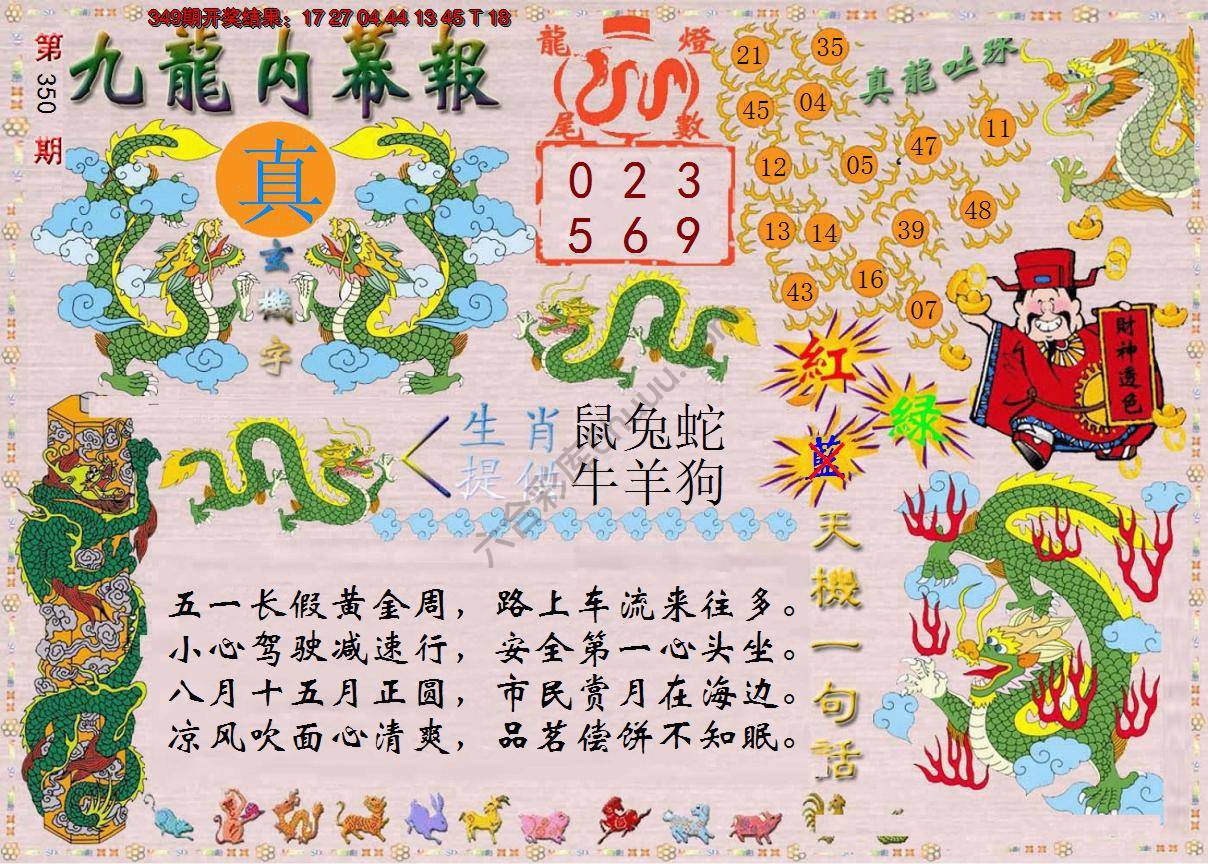 349期开奖结果：17 27 04 44 13 45 T 18
第350期
九龍内幕報
真
玄機字
龍燈
尾數
0 2 3
5 6 9
真龍吐珠
21 35
45 04
12 05 47 11
13 14 39 48
43 16 07
財神透色
紅
綠
藍
生肖 鼠兔蛇
提供 牛羊狗
天機一句話
五一长假黄金周，路上车流来往多。
小心驾驶减速行，安全第一心头坐。
八月十五月正圆，市民赏月在海边。
凉风吹面心清爽，品茗偿饼不知眠。